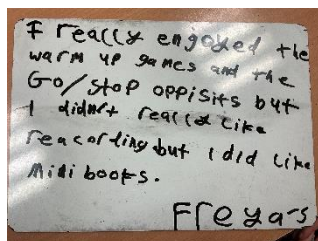 I really engoyed the
warm up games and the
Go/stop oppisits but
I didnrt reallot like
reacording but I did like
Mini books.
Freya-s